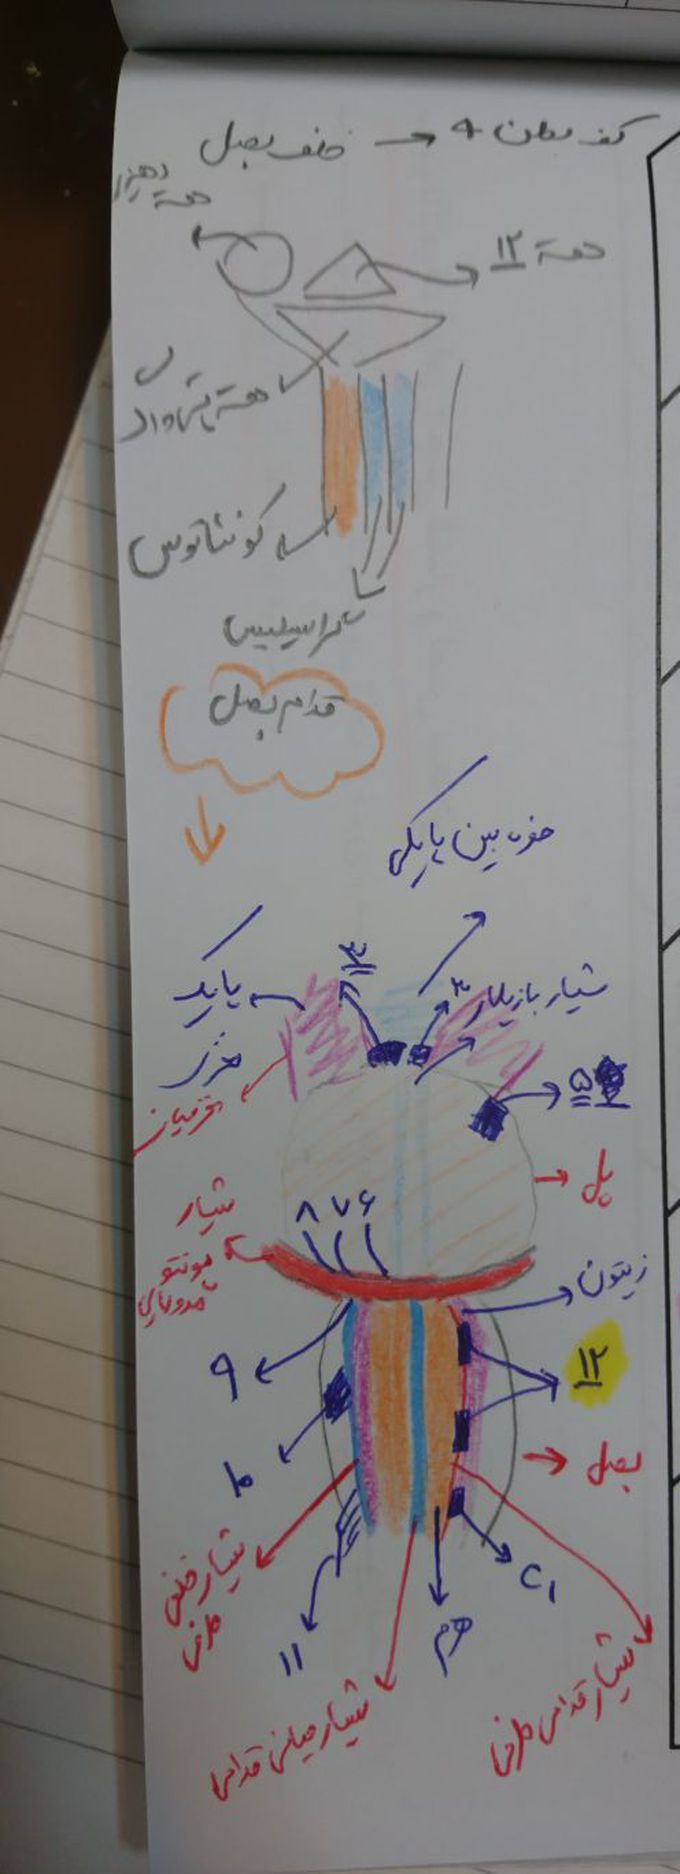 کف بطن ۴ → خلف بصل
هسته دهلیزی
هسته ۱۲
هسته پشتی واگ
کونئاتوس
گراسیلیس
قدام بصل
حفره بین پایکی
پایک
مغزی
۳
۳
شیار بازیلار
مغز میان
۵
پل
شیار
پونتو
مدولاری
۸ ۷ ۶
زیتون
۹
۱۲
۱۰
بصل
شیار خلفی
طرفی
۱۱
C1
هرم
شیار میانی قدامی
شیار قدامی طرفی